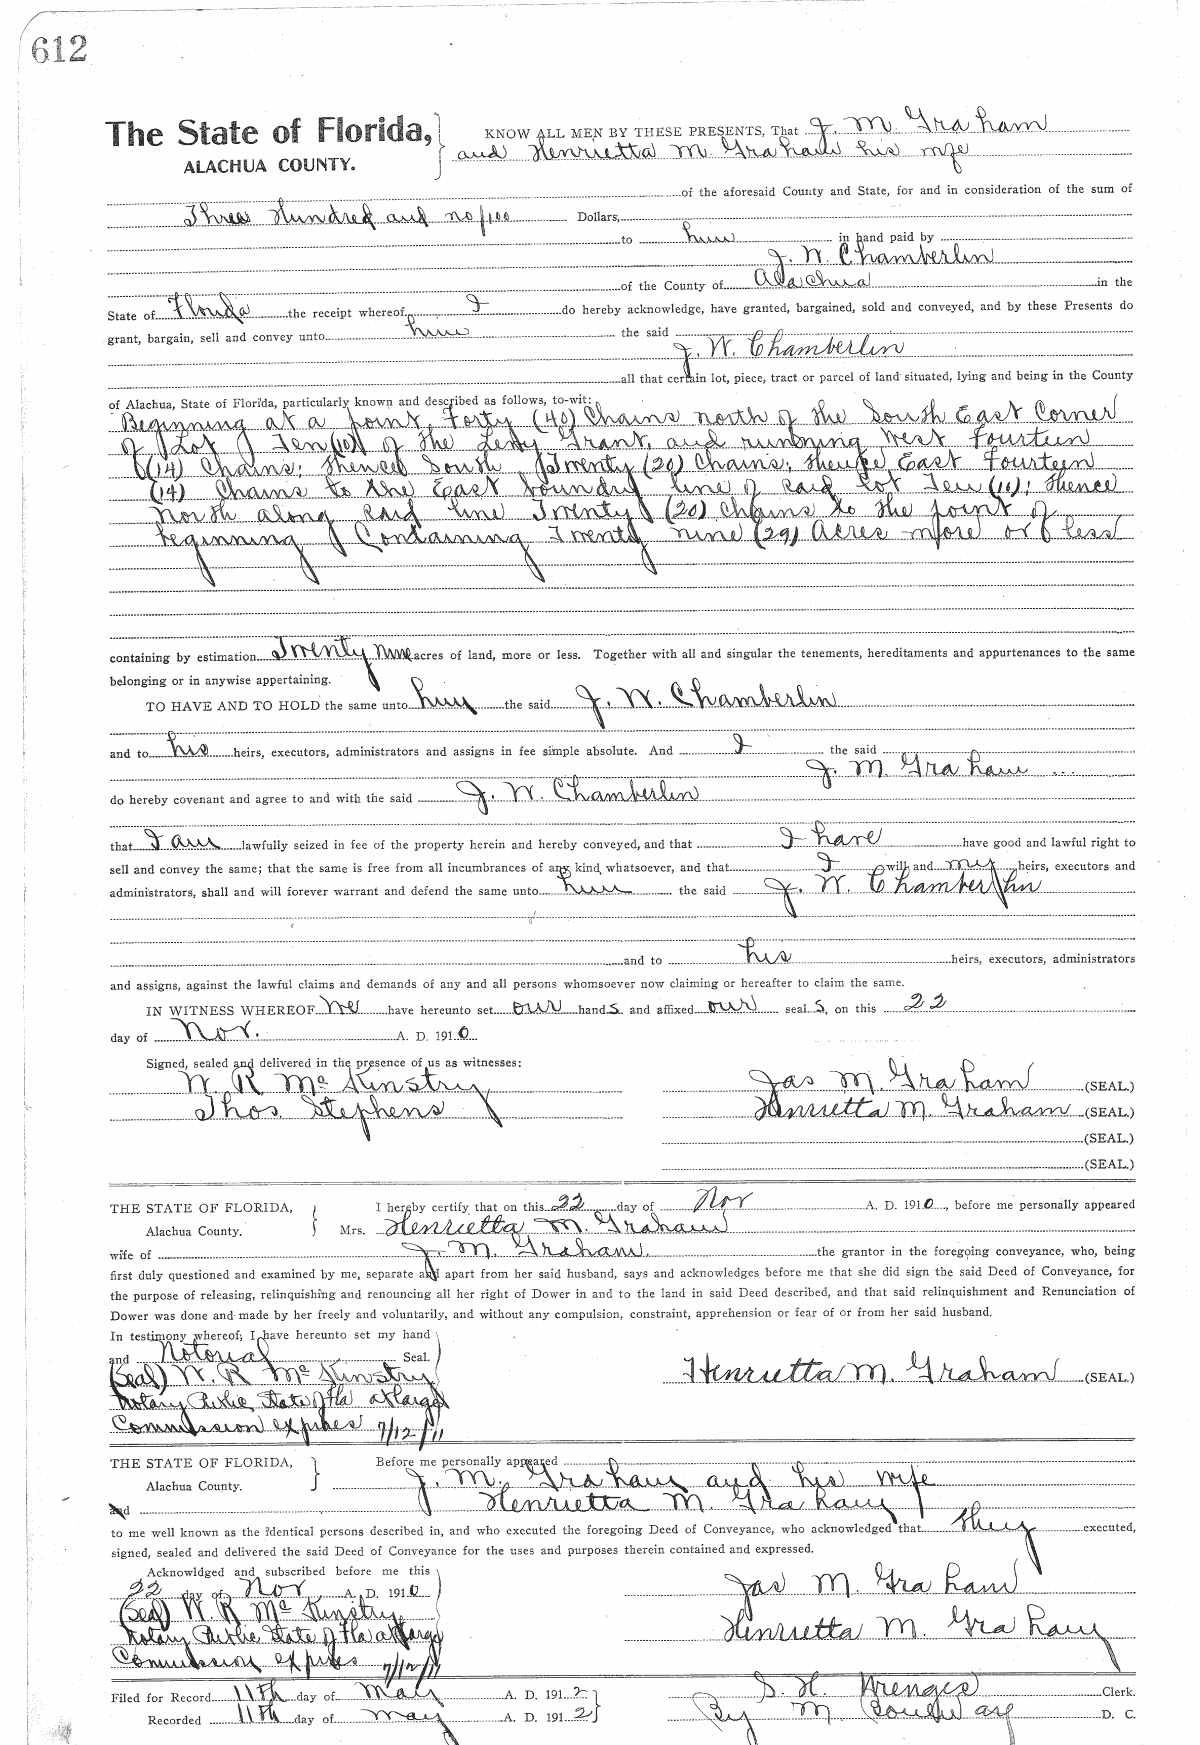 612
The State of Florida, KNOW ALL MEN BY THESE PRESENTS, That J. M. Graham
ALACHUA COUNTY. and Henrietta M. Graham his wife
of the aforesaid County and State, for and in consideration of the sum of
Three Hundred and no/100 Dollars,
to him in hand paid by
J. W. Chamberlin
of the County of Alachua in the
State of Florida the receipt whereof I do hereby acknowledge, have granted, bargained, sold and conveyed, and by these Presents do
grant, bargain, sell and convey unto him the said
J. W. Chamberlin
all that certain lot, piece, tract or parcel of land situated, lying and being in the County
of Alachua, State of Florida, particularly known and described as follows, to-wit:
Beginning at a point Forty (40) Chains north of the South East Corner
of Lot Ten (10) of the Levy Grant, and running West Fourteen
(14) Chains; thence South Twenty (20) Chains; thence East Fourteen
(14) Chains to the East boundry line of said Lot Ten (10); thence
North along said line Twenty (20) Chains to the point of
beginning Containing Twenty nine (29) Acres more or less
containing by estimation Twenty nine acres of land, more or less. Together with all and singular the tenements, hereditaments and appurtenances to the same
belonging or in anywise appertaining.
TO HAVE AND TO HOLD the same unto him the said J. W. Chamberlin
and to his heirs, executors, administrators and assigns in fee simple absolute. And I the said
J. M. Graham
do hereby covenant and agree to and with the said J. W. Chamberlin
that I am lawfully seized in fee of the property herein and hereby conveyed, and that I have have good and lawful right to
sell and convey the same; that the same is free from all incumbrances of any kind, whatsoever, and that I will and my heirs, executors and
administrators, shall and will forever warrant and defend the same unto him the said J. W. Chamberlin
and to his heirs, executors, administrators
and assigns, against the lawful claims and demands of any and all persons whomsoever now claiming or hereafter to claim the same.
IN WITNESS WHEREOF We have hereunto set our hands and affixed our seal s, on this 22
day of Nov. A. D. 1910
Signed, sealed and delivered in the presence of us as witnesses:
W. R McKinstry Jas M. Graham (SEAL.)
Thos. Stephens Henrietta M. Graham (SEAL.)
(SEAL.)
(SEAL.)
THE STATE OF FLORIDA, I hereby certify that on this 22 day of Nov A. D. 1910, before me personally appeared
Alachua County. Mrs. Henrietta M. Graham
wife of J. M. Graham. the grantor in the foregoing conveyance, who, being
first duly questioned and examined by me, separate and apart from her said husband, says and acknowledges before me that she did sign the said Deed of Conveyance, for
the purpose of releasing, relinquishing and renouncing all her right of Dower in and to the land in said Deed described, and that said relinquishment and Renunciation of
Dower was done and made by her freely and voluntarily, and without any compulsion, constraint, apprehension or fear of or from her said husband.
In testimony whereof; I have hereunto set my hand
and Notorial Seal.
(Seal) W. R McKinstry Henrietta M. Graham (SEAL)
Notary Public, State of Fla at Large
Commission expires 7/12/11
THE STATE OF FLORIDA, Before me personally appeared
Alachua County. J. M. Graham and his wife
and Henrietta M. Graham
to me well known as the identical persons described in, and who executed the foregoing Deed of Conveyance, who acknowledged that they executed,
signed, sealed and delivered the said Deed of Conveyance for the uses and purposes therein contained and expressed.
Acknowldged and subscribed before me this
22 day of Nov A. D. 1910 Jas M. Graham
(Seal) W. R McKinstry
Notary Public State of Fla at Large Henrietta M. Graham
Commission expires 7/12/11
Filed for Record 11th day of May A. D. 1912 S. H. Wienges Clerk.
Recorded 11th day of May A. D. 1912 By M. D. C.